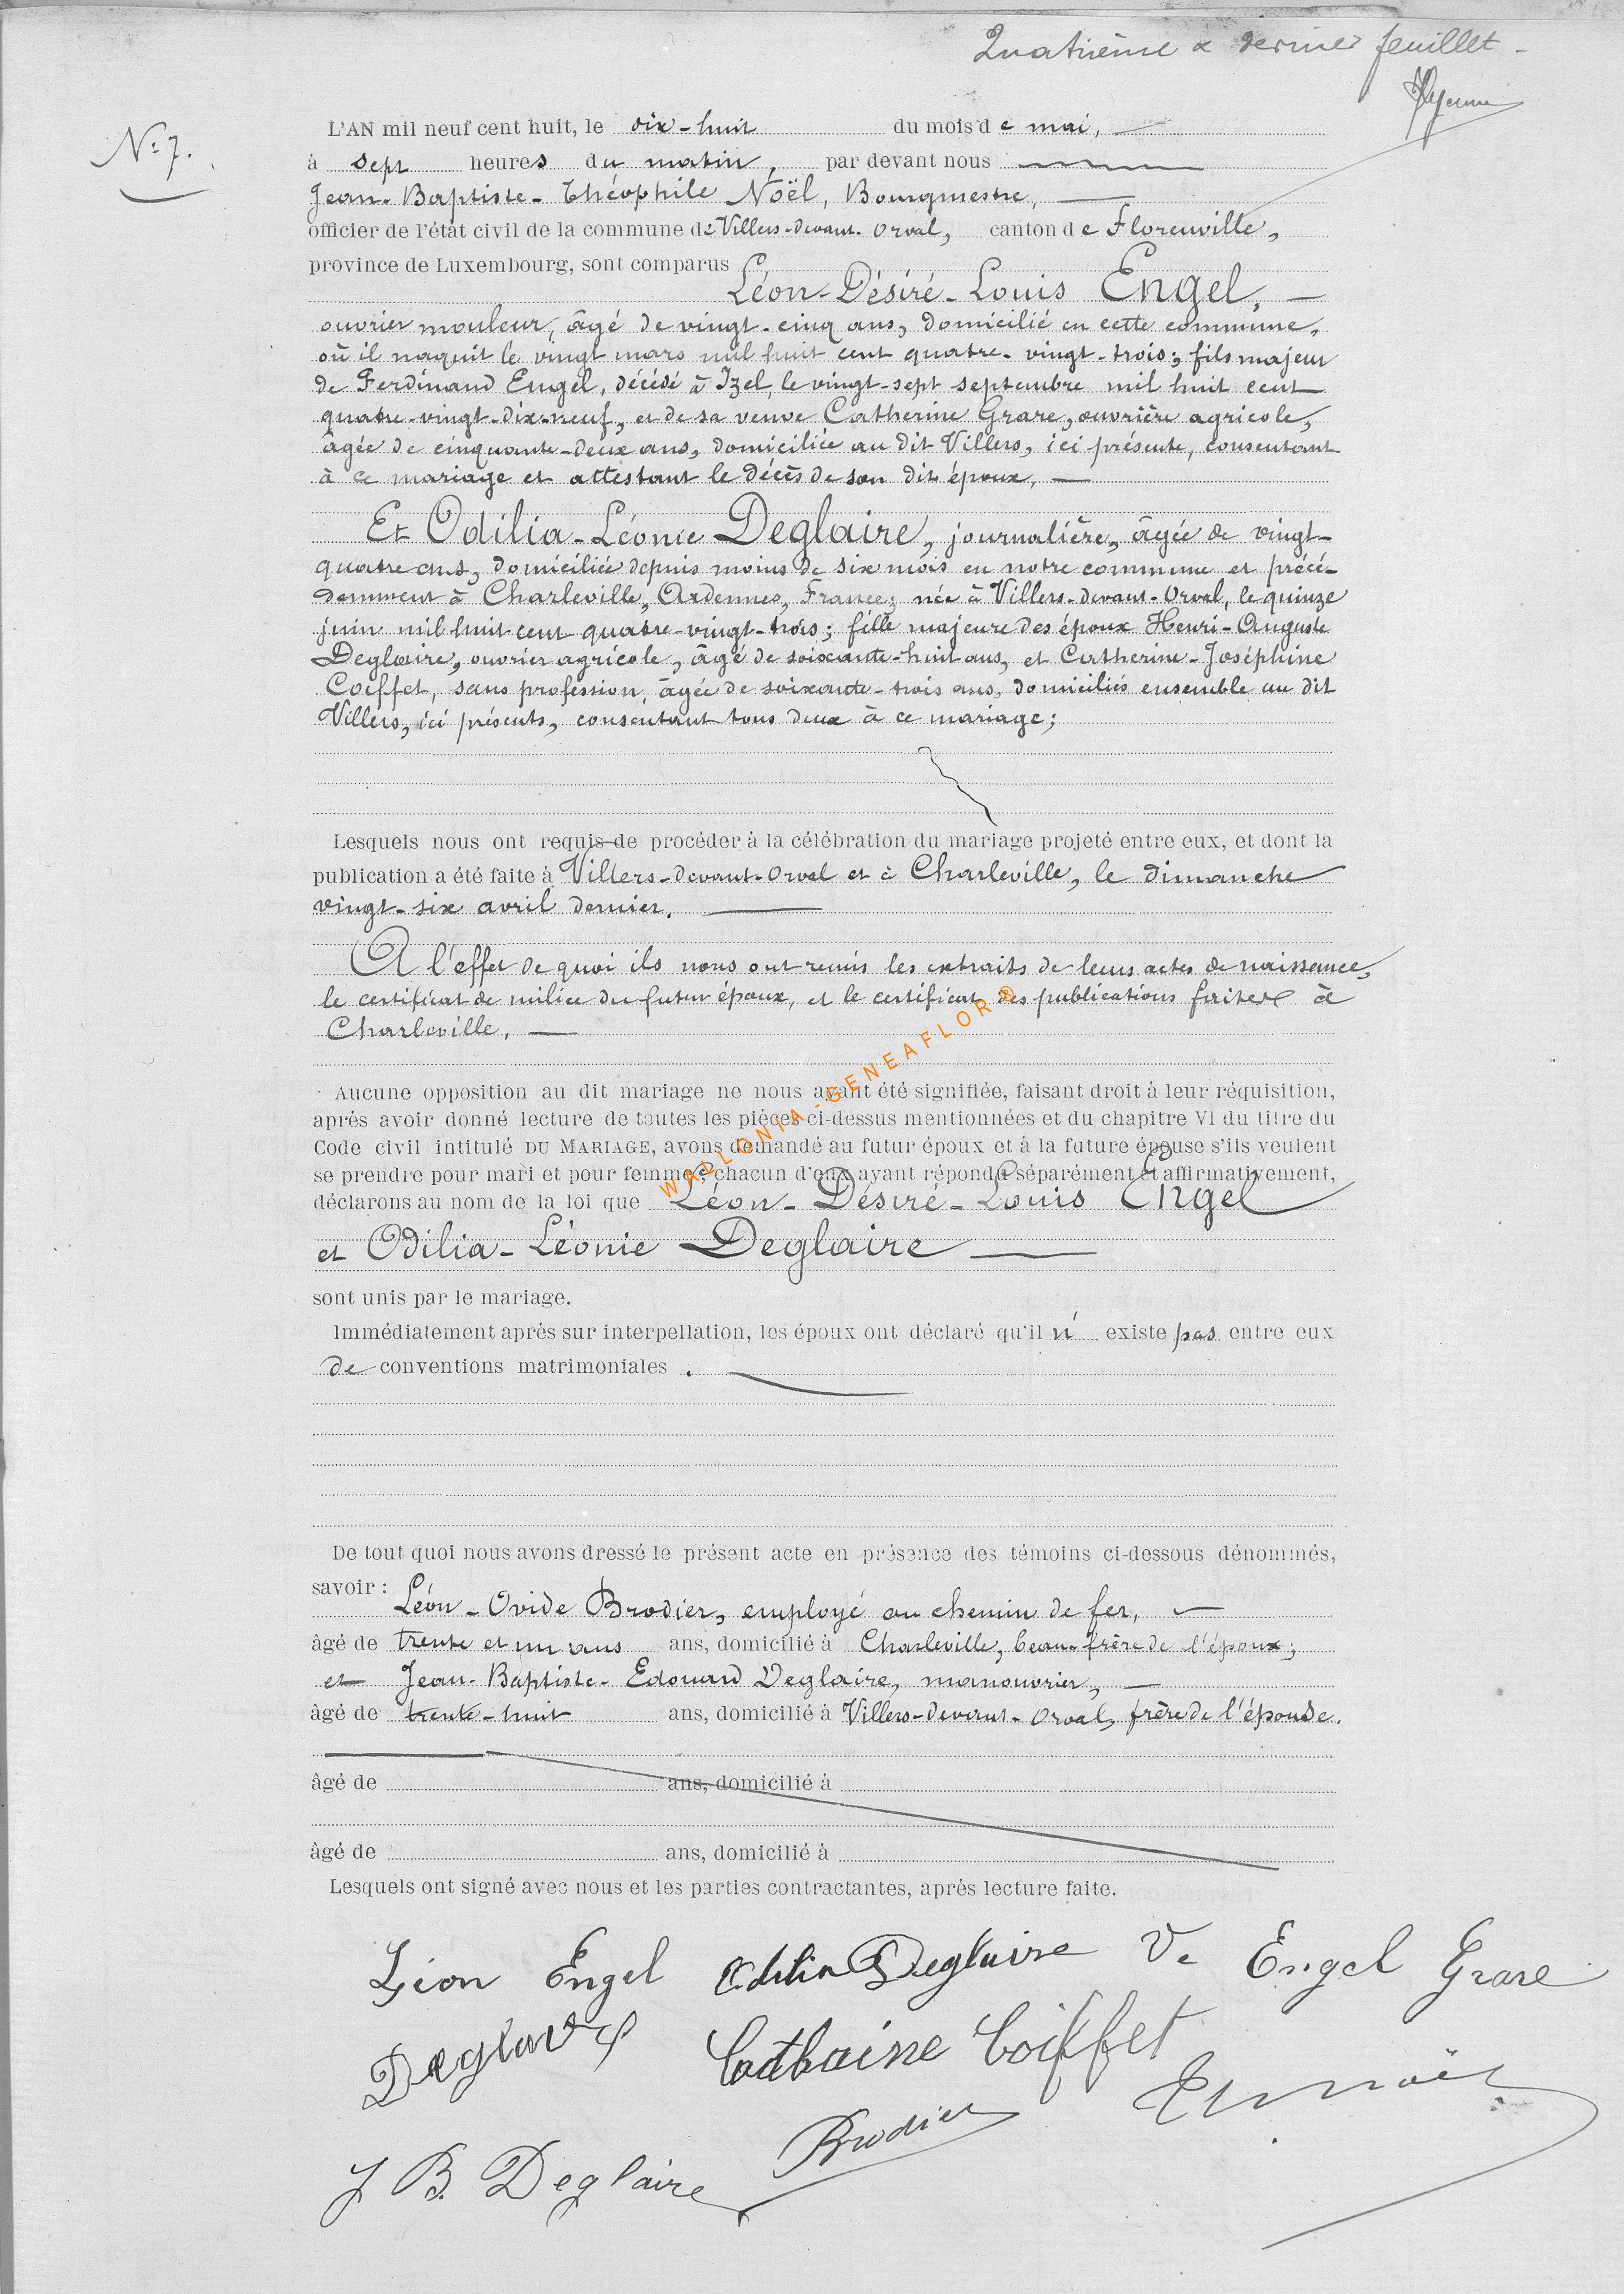 Quatrième & dernier feuillet -
N° 7.
L'AN mil neuf cent huit, le dix-huit du mois de mai,
à sept heures du matin, par devant nous
Jean-Baptiste-Théophile Noël, Bourgmestre,
officier de l'état civil de la commune de Villers-devant-Orval, canton de Florenville,
province de Luxembourg, sont comparus
Léon-Désiré-Louis Engel,
ouvrier mouleur, âgé de vingt-cinq ans, domicilié en cette commune,
où il naquit le vingt mars mil huit cent quatre-vingt-trois; fils majeur
de Ferdinand Engel, décédé à Izel, le vingt-sept septembre mil huit cent
quatre-vingt-dix-neuf, et de sa veuve Catherine Grare, ouvrière agricole,
âgée de cinquante-deux ans, domiciliée au dit Villers, ici présente, consentant
à ce mariage et attestant le décès de son dit époux,
Et Odilia-Léonie Deglaire, journalière, âgée de vingt-
quatre ans, domiciliée depuis moins de six mois en notre commune et précé-
demment à Charleville, Ardennes, France; née à Villers-devant-Orval, le quinze
juin mil huit cent quatre-vingt-trois; fille majeure des époux Henri-Auguste
Deglaire, ouvrier agricole, âgé de soixante-huit ans, et Catherine-Joséphine
Coeffet, sans profession, âgée de soixante-trois ans, domiciliés ensemble au dit
Villers, ici présents, consentant tous deux à ce mariage;
Lesquels nous ont requis de procéder à la célébration du mariage projeté entre eux, et dont la
publication a été faite à Villers-devant-Orval et à Charleville, le dimanche
vingt-six avril dernier.
A l'effet de quoi ils nous ont remis les extraits de leurs actes de naissance,
le certificat de milice du futur époux, et le certificat des publications faites à
Charleville.
WALLONIA-GENEAFLOR®
Aucune opposition au dit mariage ne nous ayant été signifiée, faisant droit à leur réquisition,
après avoir donné lecture de toutes les pièces ci-dessus mentionnées et du chapitre VI du titre du
Code civil intitulé DU MARIAGE, avons demandé au futur époux et à la future épouse s'ils veulent
se prendre pour mari et pour femme, chacun d'eux ayant répondu séparément et affirmativement,
déclarons au nom de la loi que Léon-Désiré-Louis Engel
et Odilia-Léonie Deglaire
sont unis par le mariage.
Immédiatement après sur interpellation, les époux ont déclaré qu'il n' existe pas entre eux
de conventions matrimoniales.
De tout quoi nous avons dressé le présent acte en présence des témoins ci-dessous dénommés,
savoir :
Léon-Ovide Brodier, employé au chemin de fer,
âgé de trente et un ans ans, domicilié à Charleville, beau-frère de l'époux;
et Jean-Baptiste-Edouard Deglaire, manouvrier,
âgé de trente-huit ans, domicilié à Villers-devant-Orval, frère de l'épouse.
âgé de ans, domicilié à
âgé de ans, domicilié à
Lesquels ont signé avec nous et les parties contractantes, après lecture faite.
Léon Engel Odilia Deglaire Ve Engel Grare
Deglaire Catherine Coiffet
Brodier Noël
J B. Deglaire